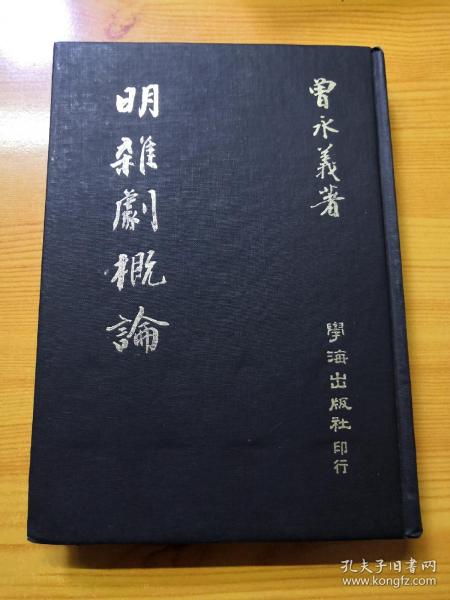 曾永義著
明雜劇概論
學海出版社印行
孔夫子旧书网
www.kongfz.com